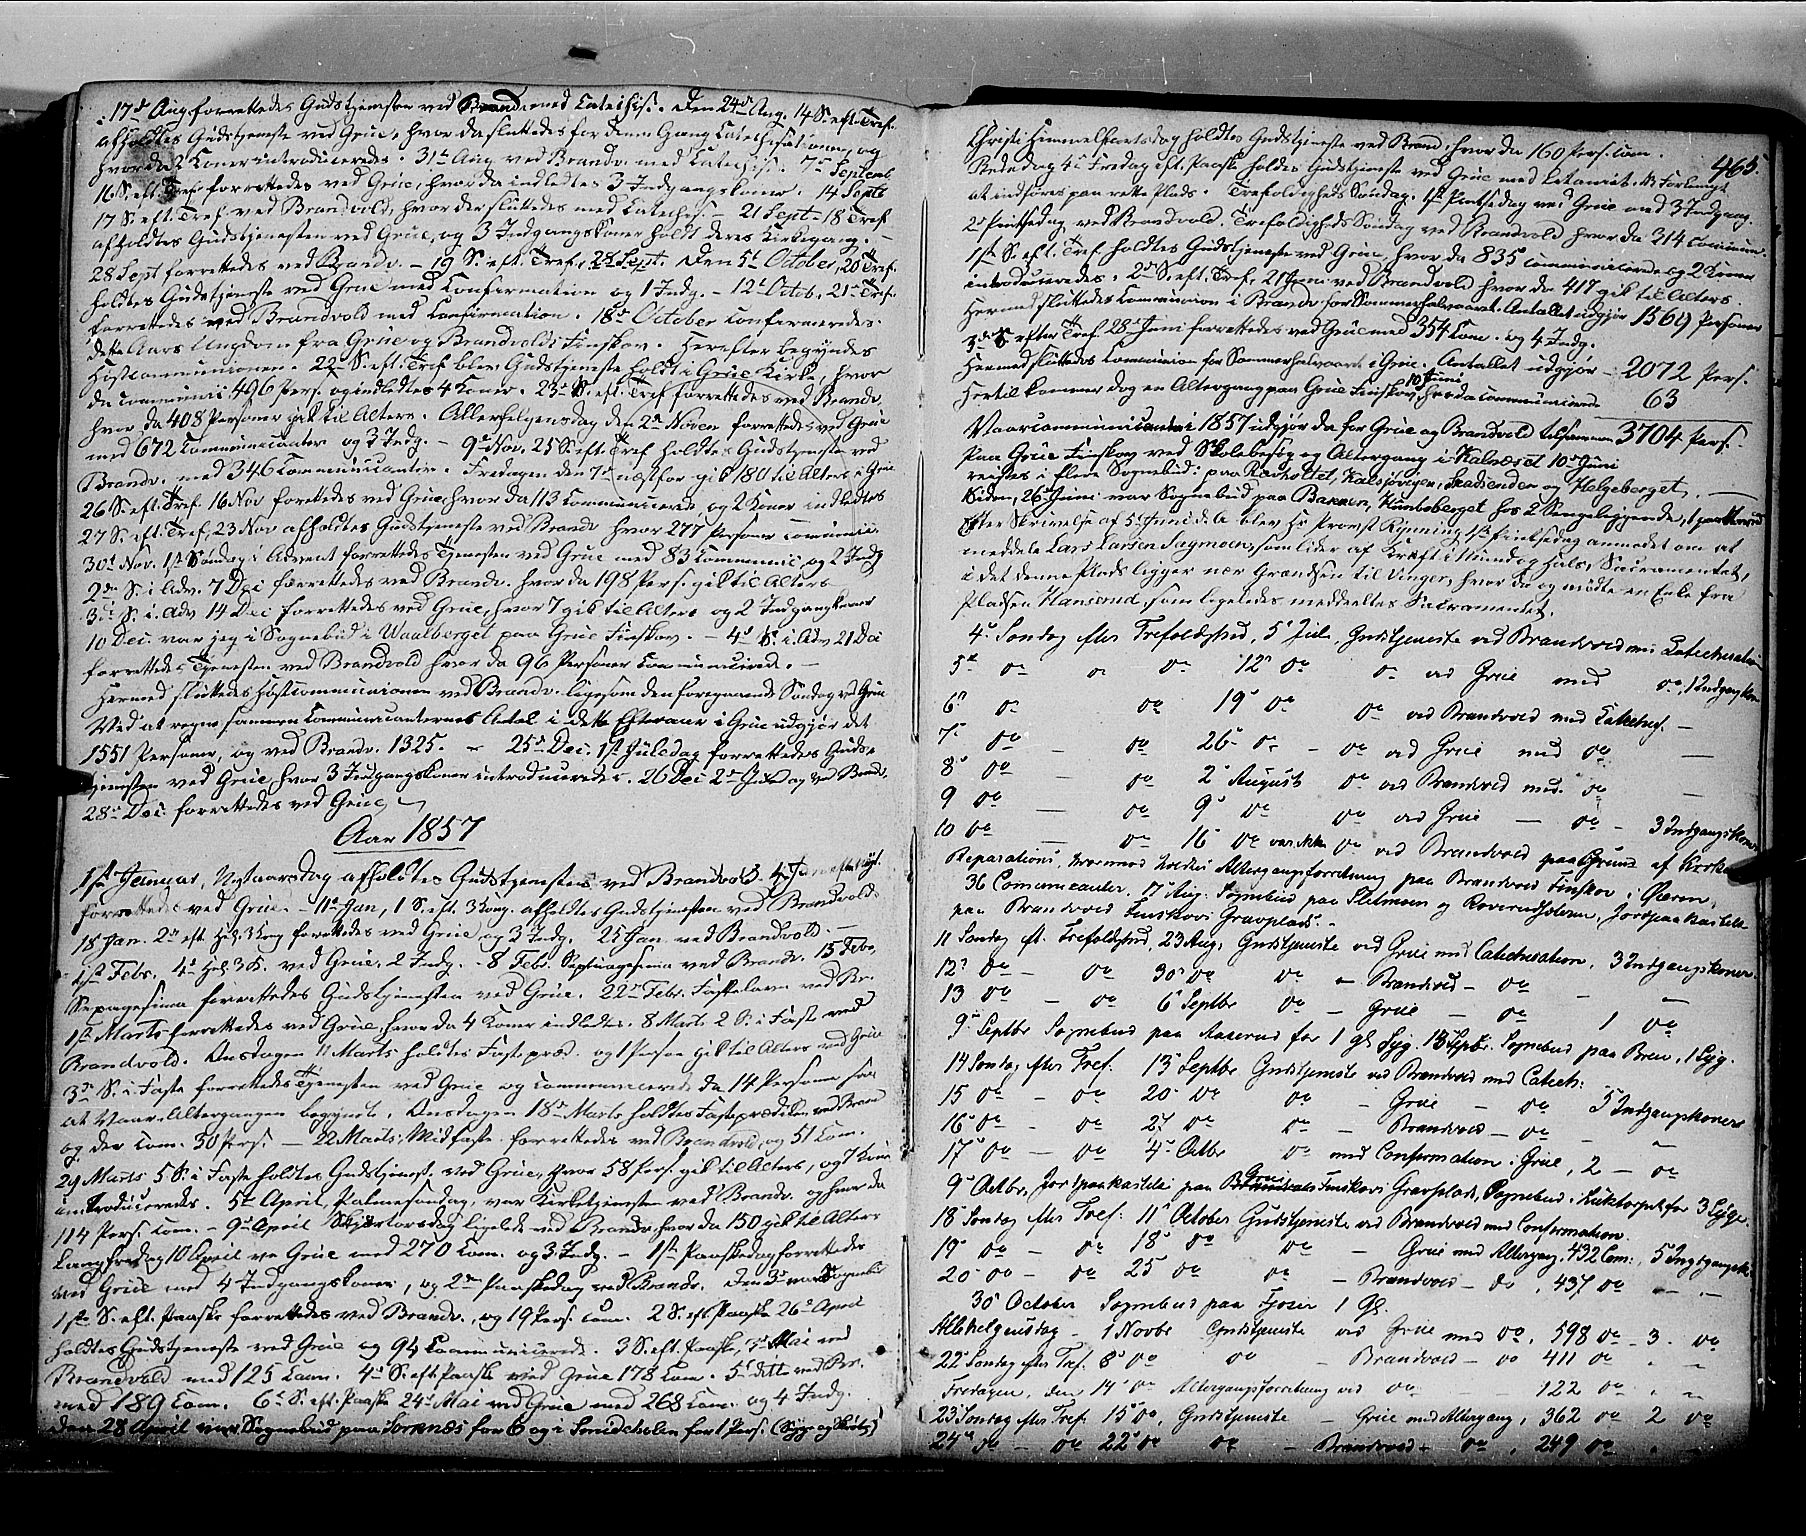 17de Aug forrettedes Gudstjenesten ved Brandv med Catechis. Den 24de Aug. 14 S. eft. Tref.
afholdtes Gudstjeneste ved Grue, hvor da sluttedes for denne Gang Catechisationen og
hvor da 2 Koner introduceredes. 31te Aug ved Brandv. med Catechis. 7de Septemb
16 S. eft. Tref forrettedes ved Grue, hvor da indledtes 3 Indgangskoner. 14 Septb
17 S. eft. Tref. ved Brandvold, hvor der sluttedes med Catechis. – 21 Sept – 18 Tref
afholdtes Gudstjenesten ved Grue, og 3 Indgangskoner holdt deres Kirkegang. –
28 Sept forrettedes ved Brandv. – 19 S. eft. Tref, 28 Sept. Den 5te October, 20 Tref.
holdtes Gudstjeneste ved Grue med Confirmation og 1 Indg. – 12te Octob. 21de Tref.
forrettedes ved Brandvold med Confirmation. 18de October confirmeredes
dette Aars Ungdom fra Grue og Brandvolds Finskov. Herefter begyndes
Høstcommunionen. 22 S. eft. Tref blev Gudstjeneste holdt i Grue Kirke, hvor
da communic 496 Pers. og indledtes 4 Koner. 23de S. eft. Tref forrettedes ved Brandv.
hvor da 408 Personer gik til Alters. Allerhelgensdag den 2den Novem forrettedes ved Grue
med 672 Communicanter og 3 Indg. – 9de Nov. 25 S. eft Tref holdtes Gudstjeneste ved
Brandv. med 346 Communicanter. Fredagen den 7de næstfor gik 180 til Alters i Grue
26 S. eft. Tref. 16 Nov forrettedes ved Grue, hvor da 113 communicerede, og 2 Koner indledtes
27 S. eft. Tref, 23 Nov afholdtes Gudstjeneste ved Brandv hvor 277 Personer communic.
30te Nov. 1ste Søndag i Advent forrettedes Tjenesten ved Grue med 83 Communic, og 2 Indg
2den S. i Adv. 7 Dec forrettedes ved Brandv. hvor da 198 Pers. gik til Alters
3die S. i Adv 14 Dec forrettedes ved Grue, hvor 7 gik til Alters og 2 Indgangskoner
10 Dec. var jeg i Sognebud i Waalberget paa Grue Finskov. – 4de S. i Adv 21 Dec
forrettedes Tjenesten ved Brandvold hvor da 96 Personer communicerede. –
Hermed sluttedes Høstcommunionen ved Brandv. ligesom den foregaaende Søndag ved Grue
Ved at regne sammen Communicanternes Antal i dette Efteraar i Grue udgjør det
1551 Personer, og ved Brandv. 1325. – 25de Dec. 1ste Juledag forrettedes Guds-
tjenesten ved Grue, hvor 3 Indgangskoner introduceredes. 26 Dec 2den Jule og ved Brandv.
28de Dec. forrettedes ved Grue
Aar 1857
1ste Januar, Nytaarsdag afholdtes Gudstjenesten ved Brandvold.
forrettedes ved Grue. – 11te Jan, 1 S. eft. 3 Kong. afholdtes Gudstjenesten ved Brandvold.
18 Jan. 2den eft. Hel. 3 Kong forrettedes ved Grue og 3 Indg. 25 Jan ved Brandvold. –
1ste Febr. 4de Hel. 3 K. ved Grue, 2 Indg. – 8 Febr. Septuagesima ved Brandv. 15 Febr.
Sexagesima forrettedes Gudstjenesten ved Grue. 22de Febr. Fastelavn ved Br.
1ste Marts forrettedes ved Grue, hvor da 4 Koner indledtes. 8 Marts 2 S. i Faste ved
Brandvold. Onsdagen 11 Marts holdtes Fastepræd. og 1 Person gik til Alters ved Grue
3de S. i Faste forrettedes Tjenesten ved Grue og communicerede da 14 Personer saa
at Vaar-Altergangen begyndte. Onsdagen 18de Marts holdtes Fasteprædiken ved Brand
og der com. 50 Pers. – 22 Marts, Midfaste forrettedes ved Brandvold, og 51 Com.
29 Marts 5 S. i Faste holdtes Gudstjenest. ved Grue, hvor 58 Pers. gik til Alters, og 7 Koner
introduceredes. 5te April, Palmesøndag, var Kirketjenesten ved Brandv. og hvor da
114 Pers. com. – 9de April Skjærtorsdag ligeledes ved Brandv. hvor da 150 gik til Alters
Langfredag 10 April ved Grue med 270 Com. og 3 Indg. – 1ste Paaskedag forrettedes
ved Grue med 4 Indgangskoner, og 2den Paaskedag ved Brandv. Den 3de var Sognebud
1ste S. eft. Paaske forrettedes ved Brandv., og 19 Pers. com. 2 S. eft Paaske 26de April
holdtes Gudstjeneste ved Grue og 94 Communicerede. 3 S. eft. Paaske, 3de Mai ved
Brandvold med 125 Com. 4de S. eft. Paaske ved Grue 178 Com. 5te ditto ved Br.
med 189 Com. 6te S. eft. Paaske 24de Mai ved Grue med 268 Com. og 4 Indg.
Den 28 April var Sognebud paa Sornæs for 6 og i for 1 Pers. (Syge og )
465.
Christi Himmelfartsdag holdtes Gudstjeneste ved Brand, hvor da 160 Pers. com.
Bededag 4de Fredag eft. Paaske holdtes Gudstjeneste ved Grue med Litaniet. NB Forlangt
at indføres paa rette Plads. Trefoldigheds Søndag. 1ste Pintsedag ved Grue med 3 Indgang.
2de Pintsedag ved Brandvold. Trefoldigheds Søndag ved Brandvold hvor da 314 commun.
1ste S. eft. Tref. holdtes Gudstjeneste ved Grue, hvor da 835 communicerede og 2 Koner
introduceredes. 2den S. eft. Tref. 21 Juni ved Brandvold hvor da 417 gik til Alters.
Hermed sluttedes Communion i Brandv. for Sommerhalvaaret. Antallet udgjør 1569 Personer
3de S efter Tref. 28de Juni forrettedes ved Grue med 354 Com. og 4 Indg.
Hermed sluttedes Communion for Sommerhalvaaret i Grue. Antallet udgjør – 2072 Pers.
Hertil kommer dog en Altergang paa Grue Finskov, 10 Juni hvor da communicerede 63
Vaarcommunicanter i 1857 udgjør da for Grue og Brandvold tilsammen 3704 Pers.
Paa Grue Finskov ved Skolebesøg og Altergang i Kalneset 10de Juni
reistes i flere Sognebud: paa Rønholtet, Kalsjøvigen, Skadienden og Helgeberget. –
Siden, 26de Juni var Sognebud paa Bakken, Hunsberget hos 2 Sengeliggende, 1 paa
Efter Skrivelse af 5te Juni d. A. blev Hr Provst Rynning 1ste Pintsedag anmodet om at
meddele Lars Larsen Sagmoen, som lider af Kræft i Mund og Hals, Sacramentet,
idet denne Plads ligger nær Grændsen til Vinger, hvor da og mødte en Enke fra
Pladsen Hansrud, som ligeledes meddeeltes Sacramentet.
4de Søndag efter Trefoldighed, 5te Juli, Gudstjeneste ved Brandvold med Catechisation
5te do do do 12te do do ved Grue med do, 1 Indgangskone
6te do do 19de do do ved Brandvold med Catechis. –
7de do – do 26de do – do ved Grue med do –
8de do – do 2de August do ved Brandvold med do –
9 do – do 9de do do ved Grue – do – 3 Indgangskoner
10 do – do 16de do var ikke do ved Brandvold paa Grund af Kirkens
Reparation, hvorimod holdtes Altergangsforretning paa Brandvold Finskov i Øieren,
36 Comunicanter. 17de Aug. Sognebud paa Flitmoen og , Jordpaakastelse
paa Brandvold Finskovs Gravplads. –
11 Søndag eft. Trefoldighed, 23 Aug, Gudstjeneste ved Grue med Catechisation, 3 Indgangskoner.
12te do – do 30te do do – Brandvold – do – –
13 do – do 6te Septbr do – Grue – do 1 do
9de Septbr Sognebud paa Aaserud for 1 gl. Syg. 13 Septbr. Sognebud paa Breie, 1 Syg.
14 Søndag efter Tref. 13de Septbr Gudstjeneste ved Brandvold med Catech.
15 do – do 20de do do – Grue – do 5 Indgangskoner
16de do – do 27 do do – Brandvold – do – –
17de do – do 4de Octbr do med Confirmation i Grue, 2 – do
9de Octbr, Jordpaakastelse paa Grue Finskovs Gravplads, Sognebud i Kuktorpet for 3 Syge.
18de Søndag efter Tref: 11te October Gudstjeneste ved Brandvold med Confirmation.
19de do – do 18de do do – Grue med Altergang, 432 Com:, 5 Indgangsk.
20de do – do 25 do do – Brandvold – do, 437 do – –
30te October Sognebud paa Tjoser 1 Gl.
Allehelgensdag – 1 Novbr Gudstjeneste ved Grue med do, 598 do – 3 – do
22de Søndag efter Tref. 8de do do – Brandvold – do 411 do – –
Fredagen, den 14de do Altergangsforretning ved do – – 122 do – –
23 Søndag efter Tref. 15de do, Gudstjeneste – Grue med Altergang, 362 do 2 do
24de do – do 22de do do – Brandvold – do, 249 do –